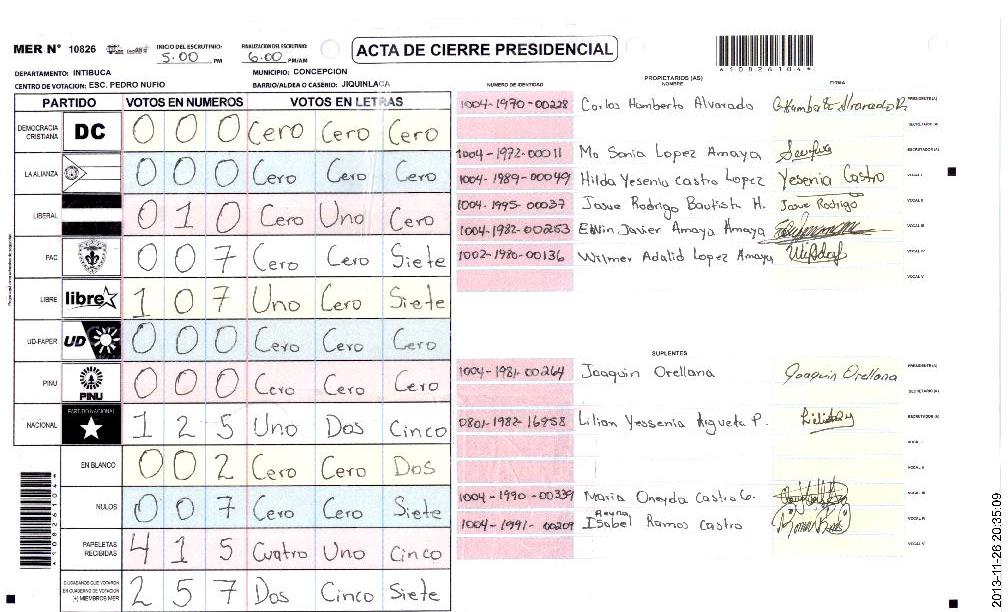 MER N° 10826 INICIO DEL ESCRUTINIO: 5:00 PM FINALIZACION DEL ESCRUTINIO: 6:00 PM/AM ACTA DE CIERRE PRESIDENCIAL
*10826104*
DEPARTAMENTO: INTIBUCA MUNICIPIO: CONCEPCION
CENTRO DE VOTACION: ESC. PEDRO NUFIO BARRIO/ALDEA O CASERIO: JIQUINLACA
PARTIDO VOTOS EN NUMEROS VOTOS EN LETRAS
DEMOCRACIA CRISTIANA DC 0 0 0 Cero Cero Cero
LA ALIANZA 0 0 0 Cero Cero Cero
LIBERAL 0 1 0 Cero Uno Cero
PAC 0 0 7 Cero Cero Siete
LIBRE libre 1 0 7 Uno Cero Siete
UD-FAPER UD 0 0 0 Cero Cero Cero
PINU PINU 0 0 0 Cero Cero Cero
NACIONAL PARTIDO NACIONAL 1 2 5 Uno Dos Cinco
EN BLANCO 0 0 2 Cero Cero Dos
NULOS 0 0 7 Cero Cero Siete
PAPELETAS RECIBIDAS 4 1 5 Cuatro Uno Cinco
CIUDADANOS QUE VOTARON EN CUADERNO DE VOTACION (+) MIEMBROS MER 2 5 7 Dos Cinco Siete
*10826104*
PROPIETARIOS (AS)
NUMERO DE IDENTIDAD NOMBRE FIRMA
1004-1970-00228 Carlos Humberto Alvarado PRESIDENTE(A)
SECRETARIO(A)
1004-1972-00011 Ma Sonia Lopez Amaya ESCRUTADOR(A)
1004-1989-00049 Hilda Yesenia Castro Lopez Yesenia Castro VOCAL I
1004-1995-00037 Josue Rodrigo Bautista H. Josue Rodrigo VOCAL II
1004-1982-00253 Edwin Javier Amaya Amaya VOCAL III
1002-1980-00136 Wilmer Adalid Lopez Amaya VOCAL IV
VOCAL V
SUPLENTES
1004-1981-00264 Joaquin Orellana Joaquin Orellana PRESIDENTE(A)
SECRETARIO(A)
0801-1982-16958 Lilian Yessenia Argueta P. ESCRUTADOR(A)
VOCAL I
VOCAL II
1004-1990-00339 Maria Oneyda Castro G. VOCAL III
1004-1991-00209 Reyna Isabel Ramos Castro VOCAL IV
VOCAL V
2013-11-26 20:35:09